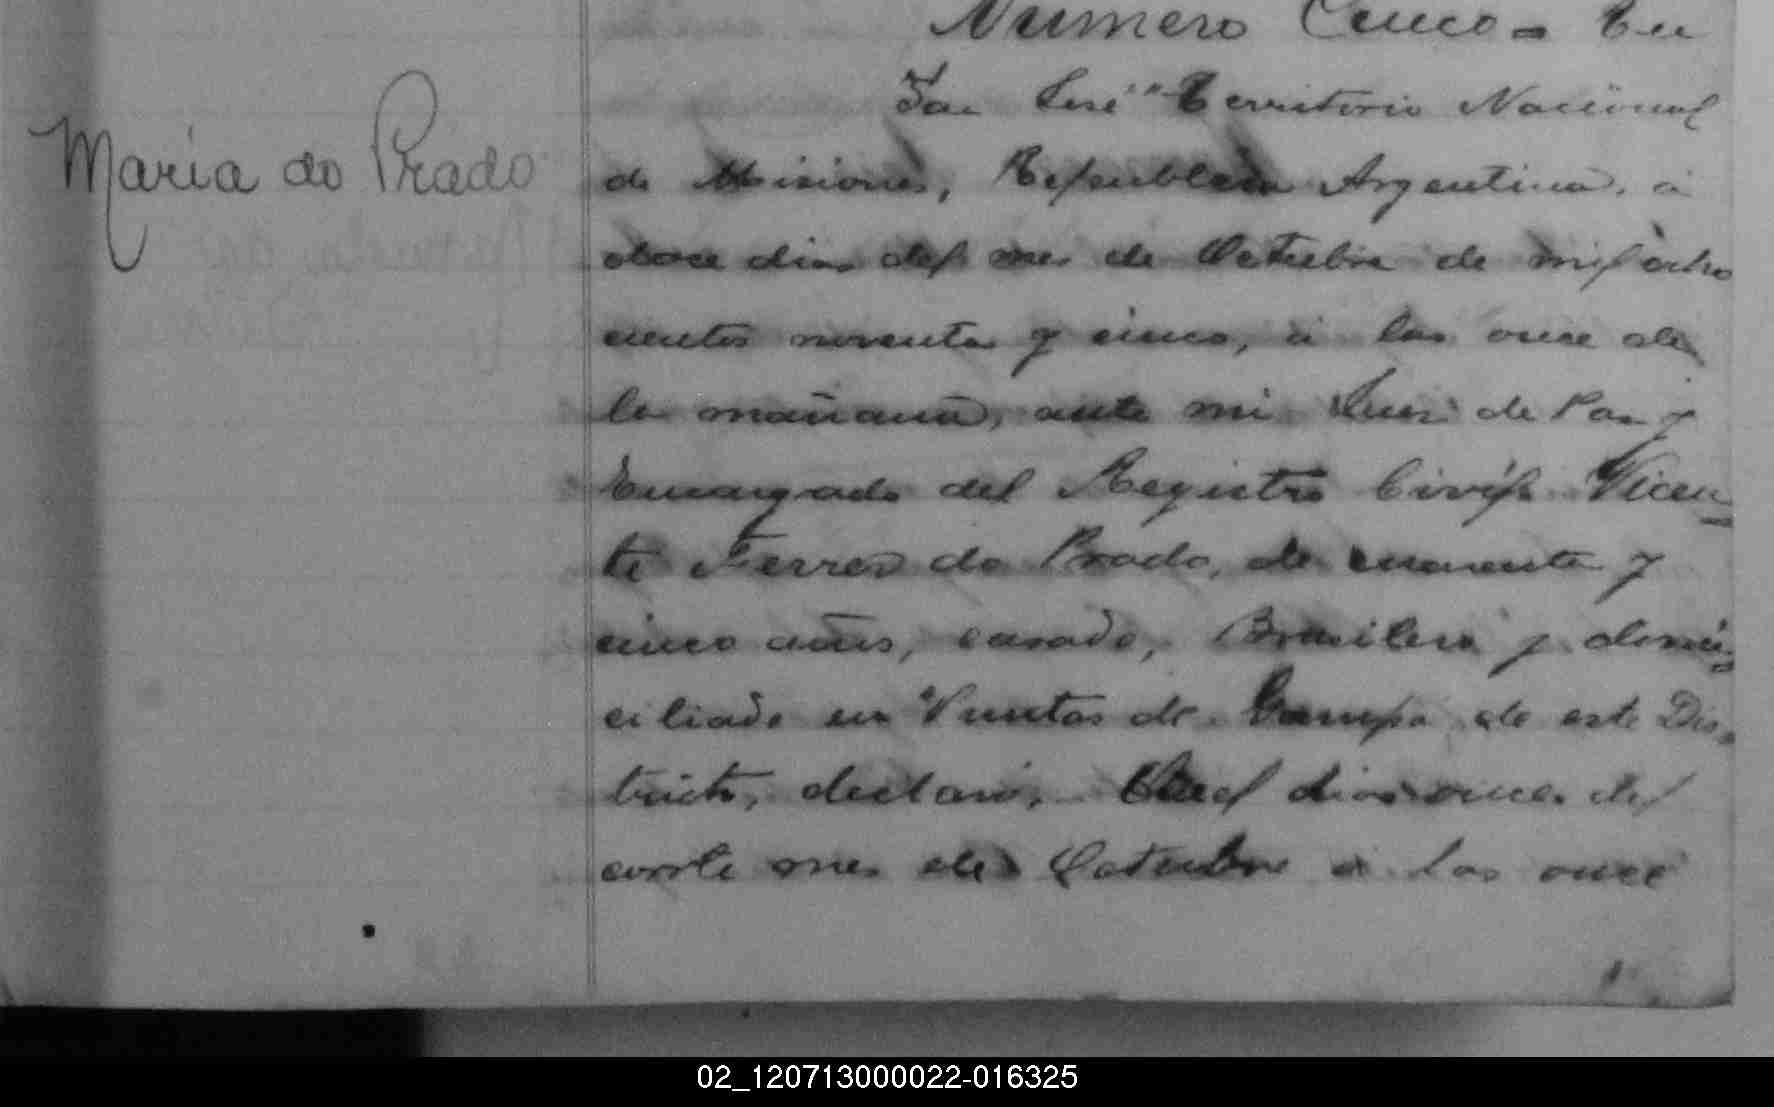 Numero Cinco = En
San José" Territorio Nacional
María do Prado
de Misiones, Republica Argentina, á
doce dias del mes de Octubre de mil ocho
cientos noventa y cinco, á las once de
la mañana, ante mi Juez de Paz y
Encargado del Registro Civil Vicen=
te Ferrer do Prado, de cuarenta y
cinco años, casado, Brasilero y domi=
ciliado en Puntas de Campo de este Dis=
tricto, declaró, Que el dia once del
corrte mes de Octubre á las once
02_120713000022-016325